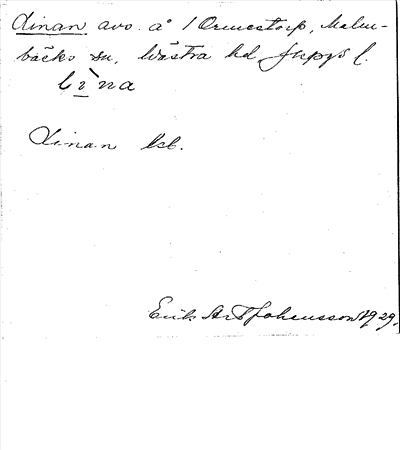 Linan avs. å 1 Ormestorp, Malm-
bäcks sn, Västra hd Jkpgs l.
lìna
Linan lst.
Erik Art Johansson 1929.